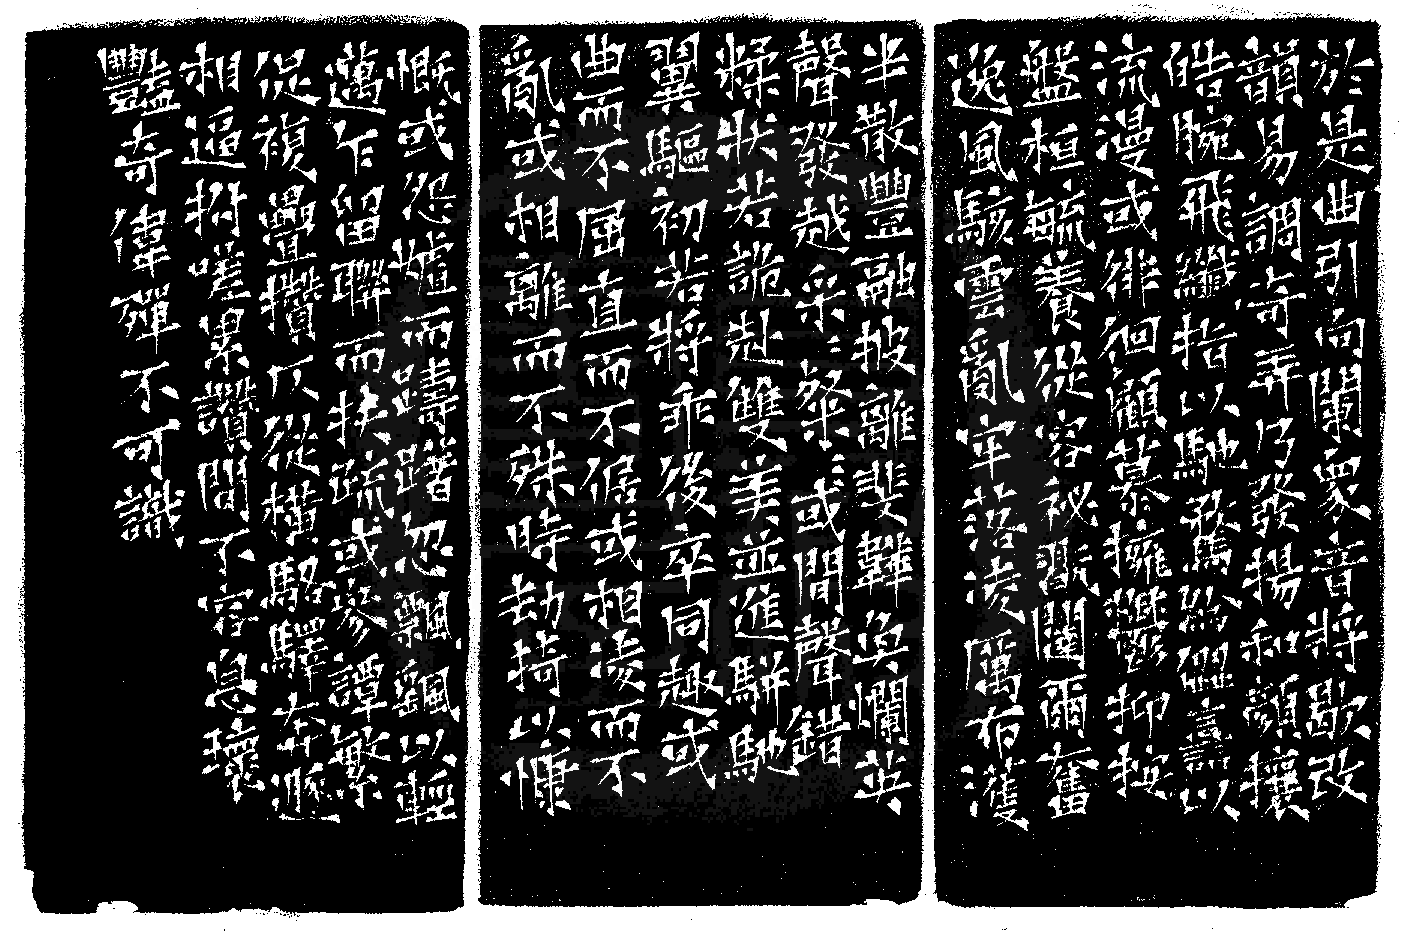 於是曲引向闌眾音將歇改
韻易調奇弄乃發揚和顏攘
皓腕飛纖指以馳騖紛𠌯譶以
流漫或徘徊顧慕擁鬱抑按
盤桓毓養從容秘翫闥爾奮
逸風駭雲亂牢落凌厲布濩
半散豐融披離斐韡奐爛英
聲發越采〻粲〻或間聲錯
糅狀若詭赴雙美並進駢馳
翼驅初若將乖後卒同趣或
曲而不屈直而不倨或相凌而不
亂或相離而不殊時劫掎以慷
慨或怨㜘而躊躇忽飄颻以輕
邁乍留聯而扶疏或參譚繁
促複疊攢仄從橫駱驛奔遯
相逼拊嗟累讚間不容息瓌
豔奇偉殫不可識